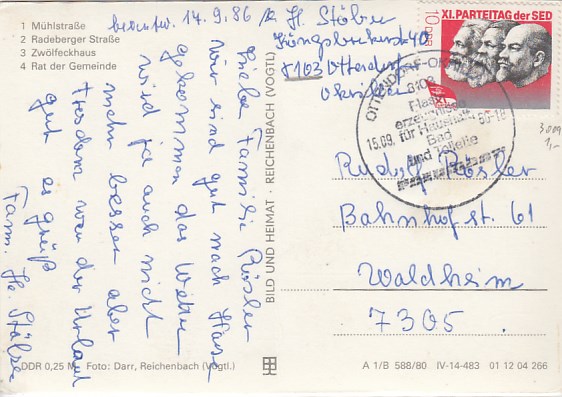 1 Mühlstraße
2 Radeberger Straße
3 Zwölfeckhaus
4 Rat der Gemeinde
14.9.86
H. Stöber
40
8103 Ottendorf
Okrilla
Liebe Familie Rösler
wir sind gut nach Hause
gekommen das Wetter
wird ja auch nicht
mehr besser aber
trozdem war der Urlaub
gut es grüßt
Fam. H.
BILD UND HEIMAT · REICHENBACH (VOGTL)
10
DDR
XI. PARTEITAG der SED
OTTENDORF-OKRILLA
8103
15.09.
erzeugnisse
für Haushalt
Bad
und Toilette
3009
1,-
Rudolf Rösler
Bahnhofst. 61
Waldheim
7305.
DDR 0,25 M Foto: Darr, Reichenbach (Vogtl.)
A 1/B 588/80 IV-14-483 01 12 04 266